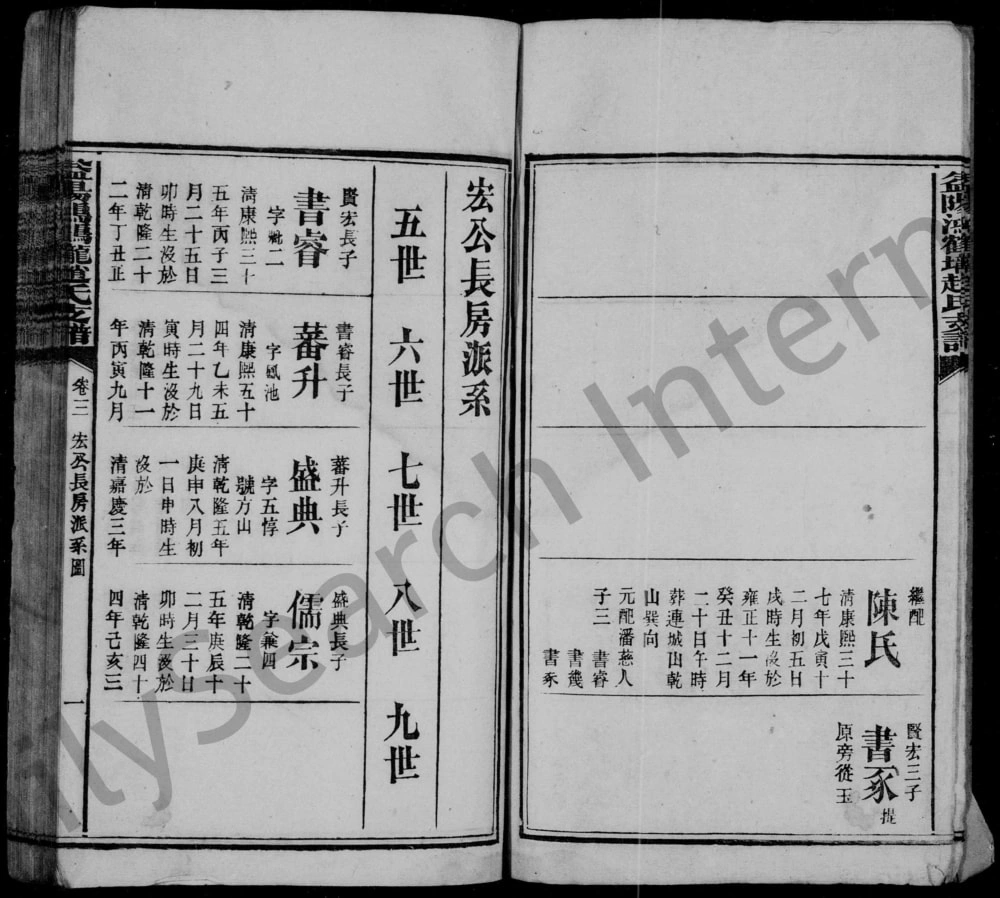 繼配
陳氏
清康熙三十
七年戊寅十
二月初五日
戌時生沒於
雍正十一年
癸丑十二月
二十日午時
葬連城山乾
山巽向
元配潘慈人
子三 書睿
書幾
書豕
賢宏三子
書豕 提
原旁從玉
宏公長房派系
五世 六世 七世 八世 九世
賢宏長子
書睿
字 二
清康熙三十
五年丙子三
月二十五日
卯時生沒於
清乾隆二十
二年丁丑正
書睿長子
蕃升
字鳳池
清康熙五十
四年乙未五
月二十九日
寅時生沒於
清乾隆十一
年丙寅九月
蕃升長子
盛典
字五惇
號方山
清乾隆五年
庚申八月初
一日申時生
沒於
清嘉慶三年
盛典長子
儒宗
字兼四
清乾隆二十
五年庚辰十
二月三十日
卯時生沒於
清乾隆四十
四年己亥三
卷三 宏公長房派系圖 一
FamilySearch Intern